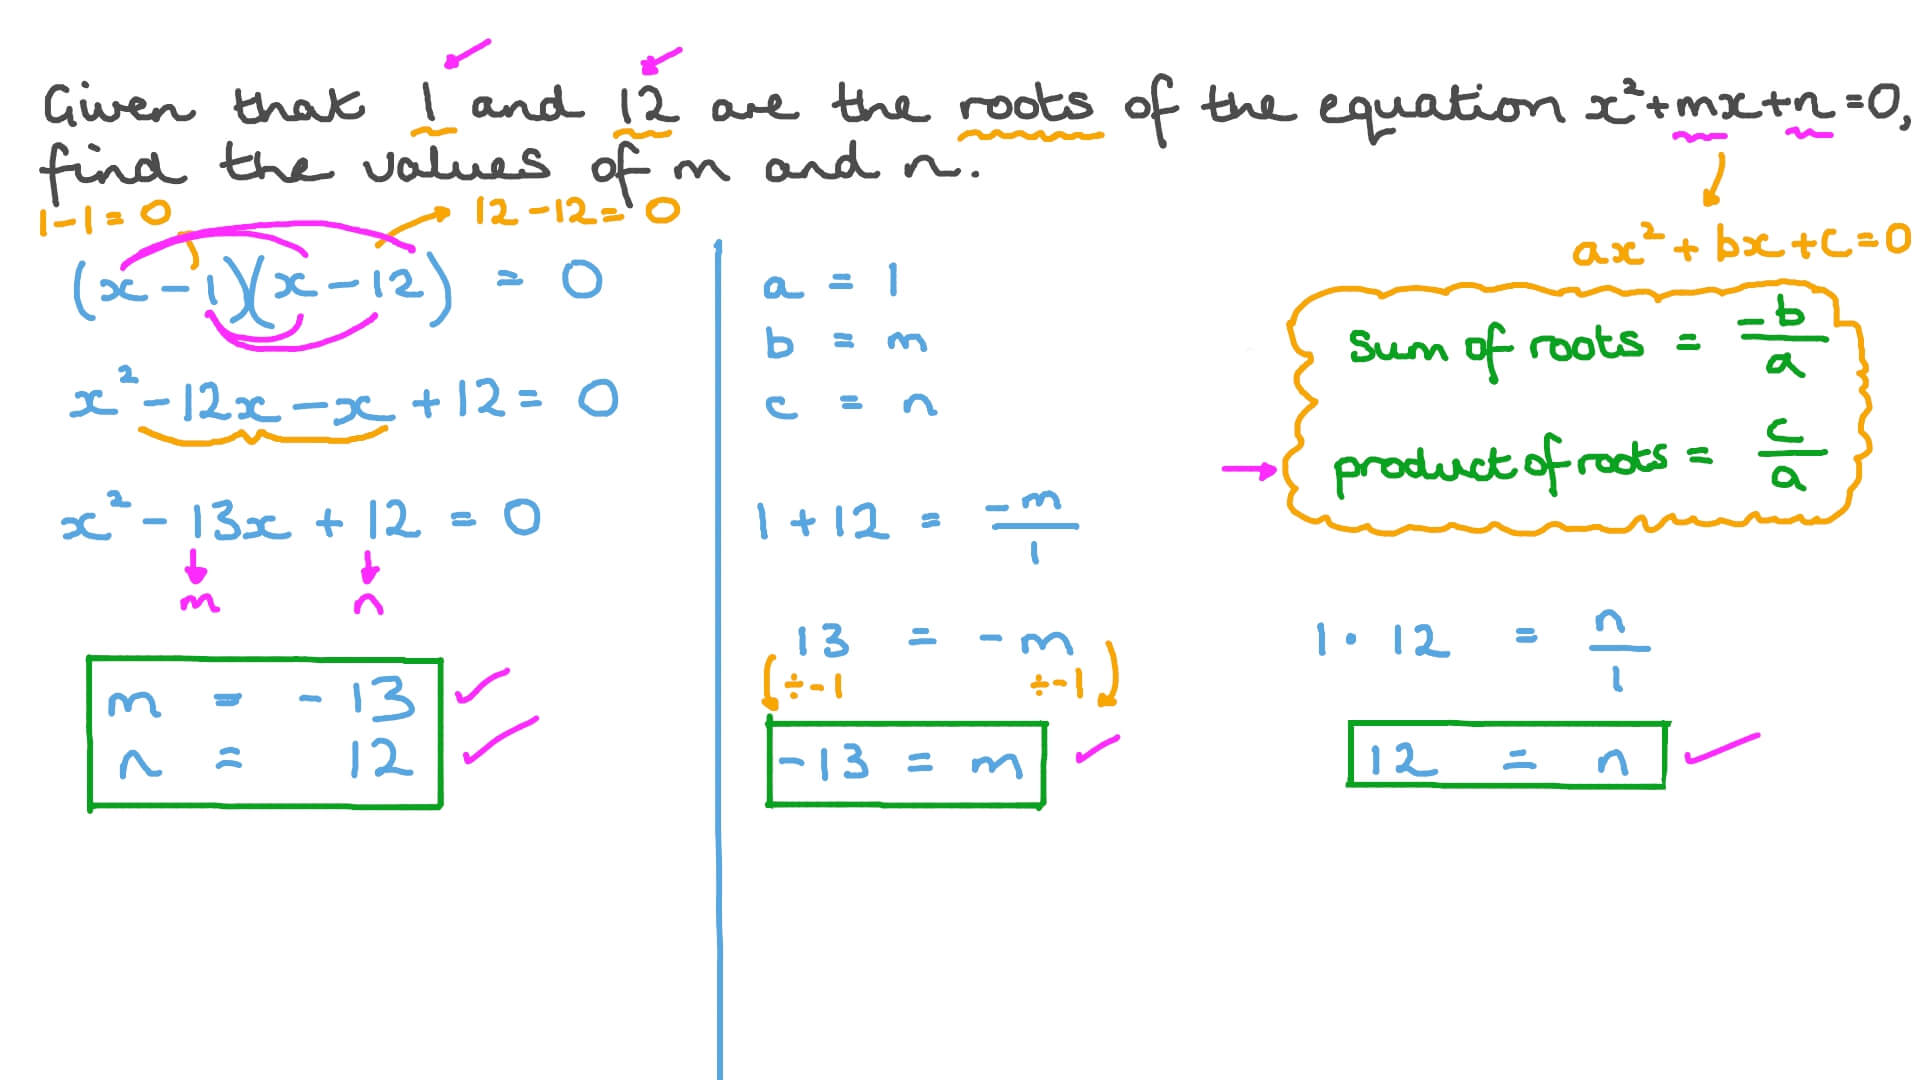 Given that 1 and 12 are the roots of the equation x²+mx+n=0,
find the values of m and n.
1-1=0
12-12=0
(x-1)(x-12) = 0
x²-12x-x+12=0
x²-13x+12=0
m n
m = -13
n = 12
a = 1
b = m
c = n
1+12 = -m/1
13 = -m
÷-1 ÷-1
-13 = m
ax²+bx+c=0
sum of roots = -b/a
product of roots = c/a
1·12 = n/1
12 = n